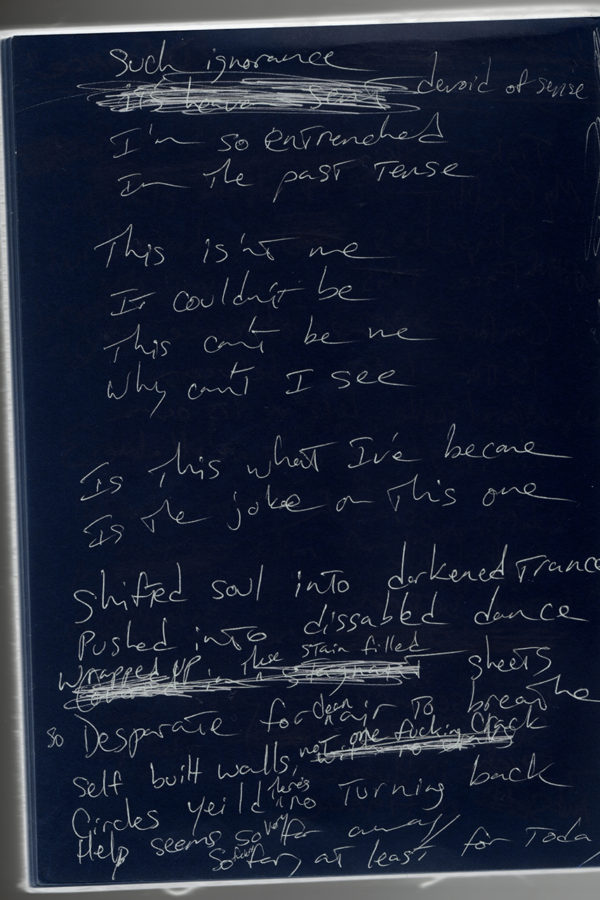 Such ignorance
devoid of sense
I'm so entrenched
In the past tense
This isn't me
It couldn't be
This can't be me
Why can't I see
Is this what I've become
Is the joke on this one
Shifted soul into darkened trance
Pushed into dissabled dance
Wrapped up in these stain filled sheets
so Desparate for clean air to breathe
Self built walls, not one fucking crack
Circles yeild there's no turning back
Help seems so very far away
So far, at least for Toda